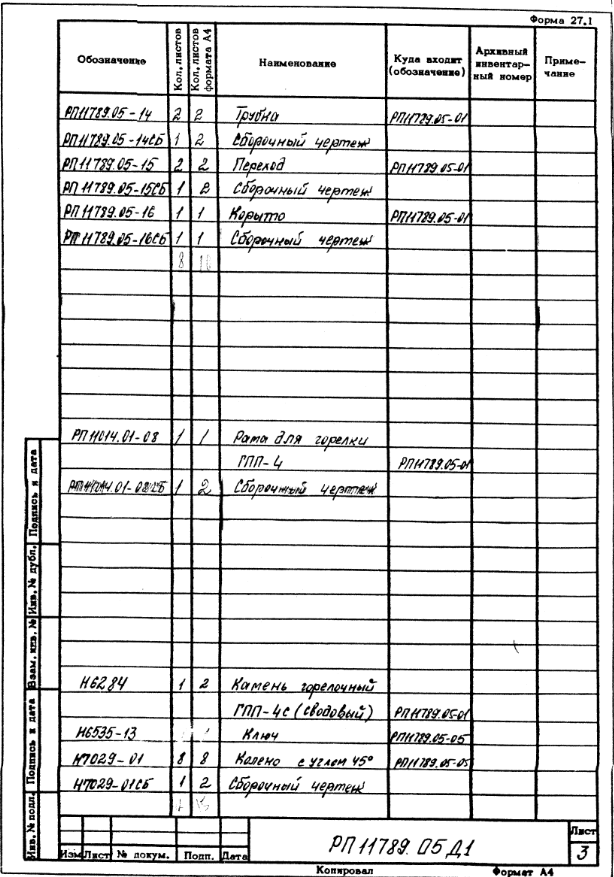 Форма 27.1
Обозначение Кол. листов Кол. листов формата А4 Наименование Куда входит (обозначение) Архивный инвентар-ный номер Приме-чание
РП11789.05-14 2 2 Трубка РП11789.05-01
РП11789.05-14СБ 1 2 Сборочный чертеж
РП11789.05-15 2 2 Переход РП11789.05-01
РП11789.05-15СБ 1 2 Сборочный чертеж
РП11789.05-16 1 1 Корыто РП11789.05-01
РП11789.05-16СБ 1 1 Сборочный чертеж
8
РП11014.01-08 1 1 Рама для горелки
ГПП-4 РП11789.05-01
РП11014.01-08СБ 1 2 Сборочный чертеж
Н6284 1 2 Камень горелочный
ГПП-4с (сводовый) РП11789.05-01
Н6535-13 Ключ РП11789.05-05
Н7029-01 8 8 Колено с углом 45° РП11789.05-05
Н7029-01СБ 1 2 Сборочный чертеж
Инв. № подл. Подпись и дата Взам. инв. № Инв. № дубл. Подпись и дата
Изм Лист № докум. Подп. Дата
РП11789.05Д1
Лист
3
Копировал Формат А4